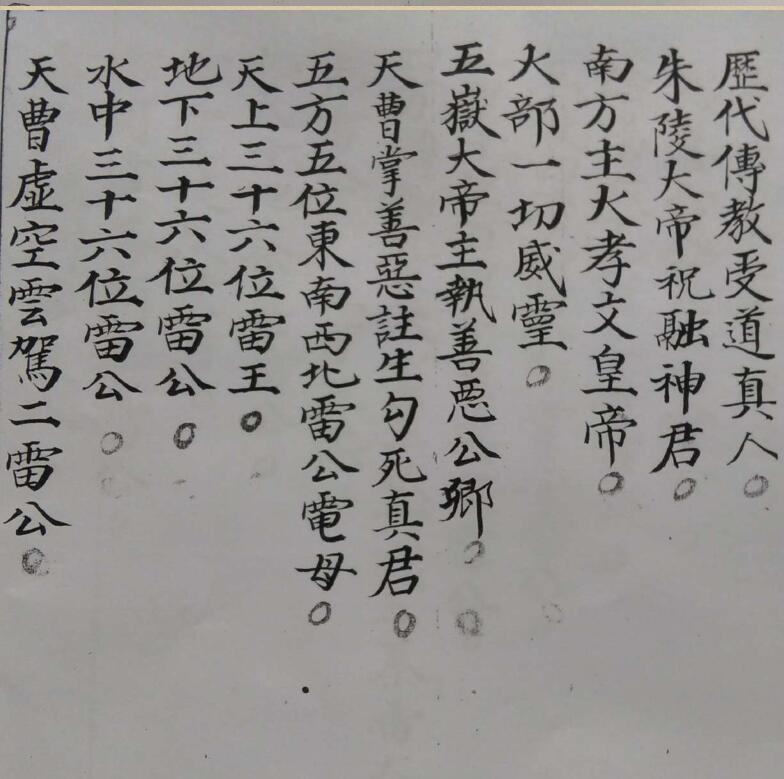 歷代傳教受道真人
朱陵大帝祝融神君
南方主火孝文皇帝
火部一切威靈
五嶽大帝主執善惡公卿
天曹掌善惡註生勾死真君
五方五位東南西北雷公電母
天上三十六位雷王
地下三十六位雷公
水中三十六位雷公
天曹虛空雲駕二雷公